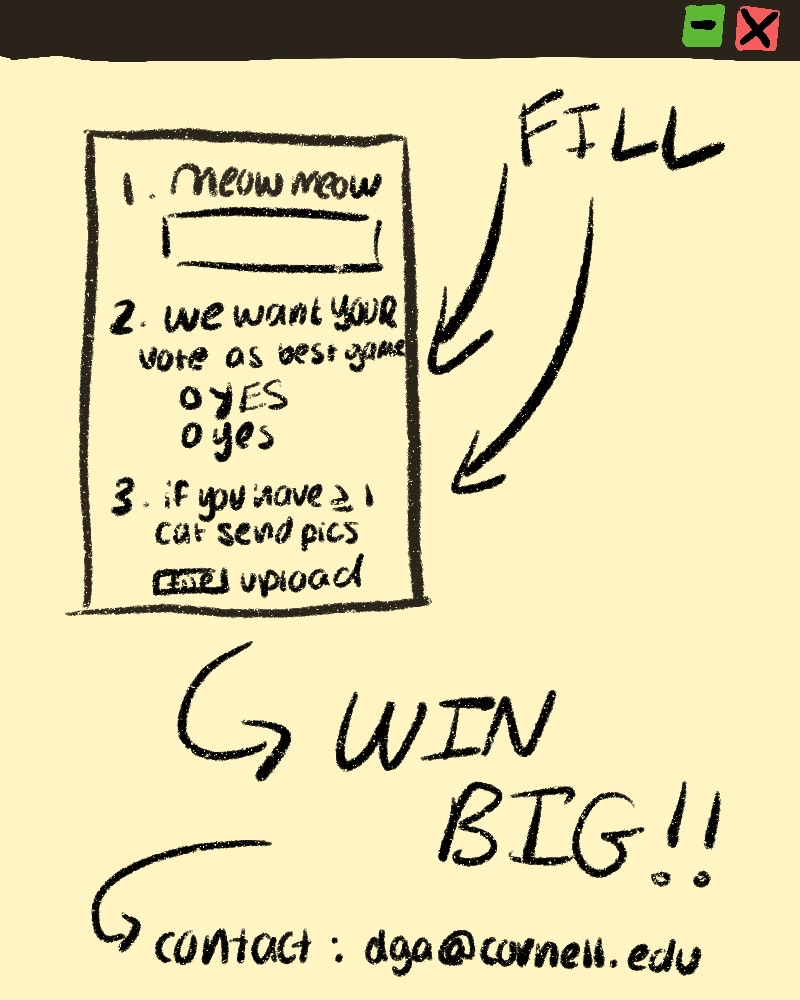 FILL
1. Meow meow
2. we want YOUR
vote as best game
O YES
O yes
3. if you have ≥ 1
cat send pics
upload
WIN
BIG!!
contact : dga@cornell.edu